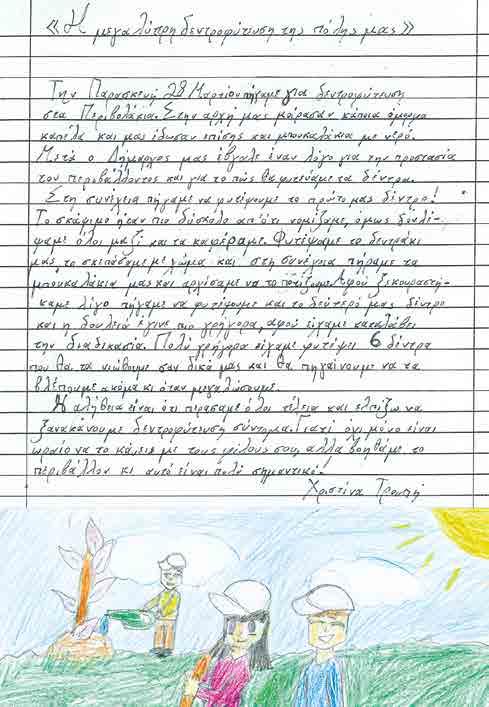 «Η μεγαλύτερη δεντροφύτευση της πόλης μας»
Την Παρασκευή 28 Μαρτίου πήγαμε για δεντροφύτευση
στα Περιβολάκια. Στην αρχή μας μοίρασαν κάποια όμορφα
καπέλα και μας έδωσαν επίσης και μπουκαλάκια με νερό.
Μετά ο Δήμαρχος μας έβγαλε έναν λόγο για την προστασία
του περιβάλλοντος και για το πώς θα φυτεύαμε τα δέντρα.
Στη συνέχεια πήγαμε να φυτέψουμε το πρώτο μας δέντρο!
Το σκάψιμο ήταν πιο δύσκολο απ'ότι νομίζαμε, όμως δουλέ-
ψαμε όλοι μαζί και τα καταφέραμε. Φυτέψαμε το δεντράκι
μας, το σκεπάσαμε με χώμα και στη συνέχεια πήραμε τα
μπουκαλάκια μας και αρχίσαμε να το ποτίζουμε. Αφού ξεκουραστή-
καμε λίγο πήγαμε να φυτέψουμε και το δεύτερό μας δέντρο
και η δουλειά έγινε πιο γρήγορα, αφού είχαμε καταλάβει
την διαδικασία. Πολύ γρήγορα είχαμε φυτέψει 6 δέντρα
που θα τα νιώθουμε σαν δικά μας και θα πηγαίνουμε να τα
βλέπουμε ακόμα κι όταν μεγαλώσουμε.
Η αλήθεια είναι ότι περάσαμε όλοι τέλεια και ελπίζω να
ξανακάνουμε δεντροφύτευση σύντομα. Γιατί όχι μόνο είναι
ωραίο να το κάνεις με τους φίλους σου, αλλά βοηθάμε το
περιβάλλον κι αυτό είναι πολύ σημαντικό!
Χριστίνα